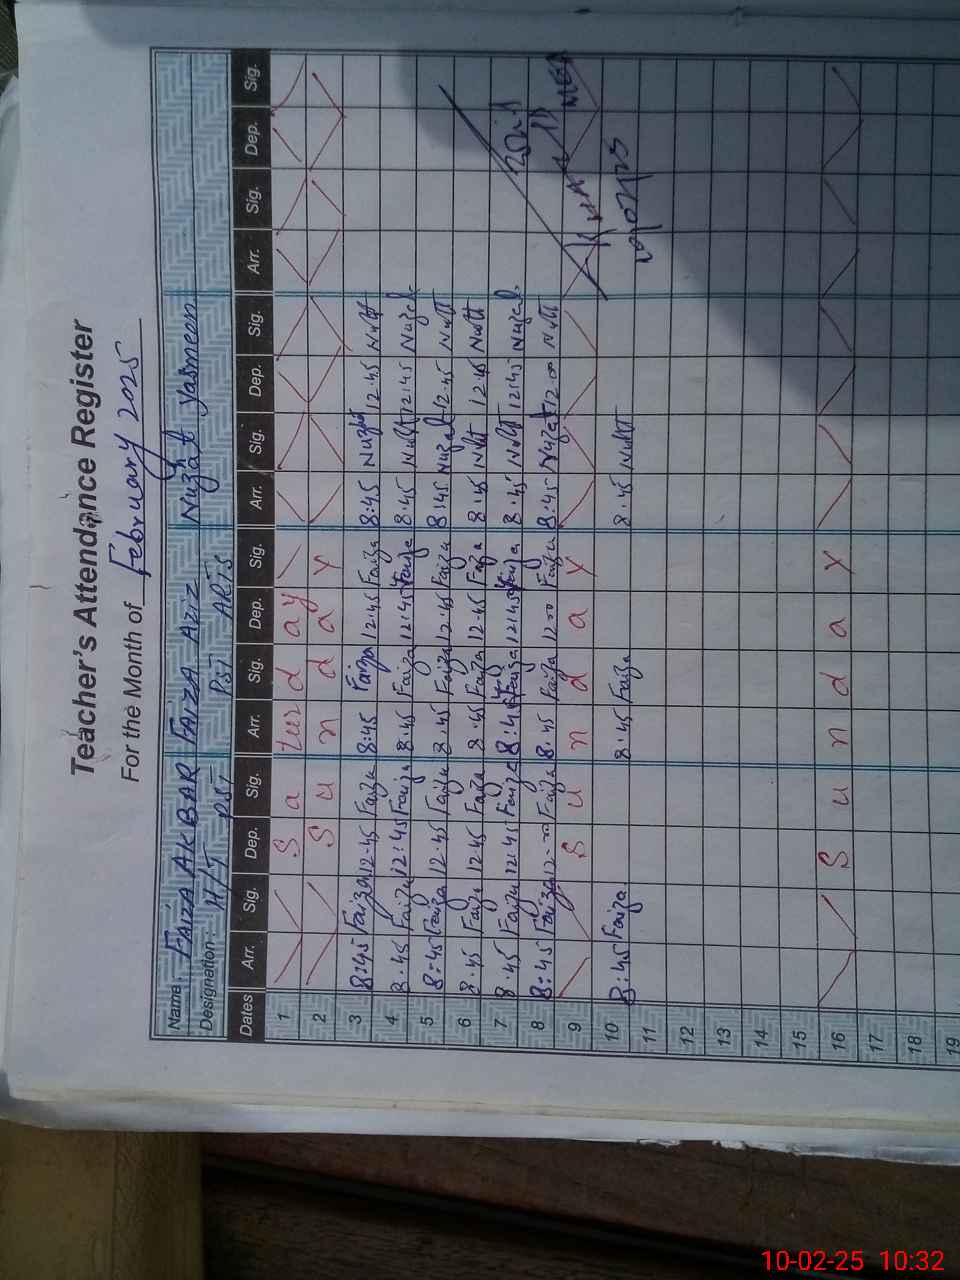 Teacher's Attendance Register
For the Month of February 2025
Name FAIZA AKBAR FAIZA AZIZ Nuzhat Yasmeen
Designation H/T PST PST ARTS
Dates Arr. Sig. Dep. Sig. Arr. Sig. Dep. Sig. Arr. Sig. Dep. Sig. Arr. Sig. Dep. Sig.
1 S a tur d ay
2 S u n d a y
3 8:45 Faiza 12-45 Faiza 8:45 Faiza 12.45 Faiza 8:45 12.45
4 8.45 Faiza 12:45 Faiza 8.45 Faiza 12:45 Faiza 8.45 12:45
5 8:45 Faiza 12.45 Faiza 8.45 Faiza 12.45 Faiza 8:45 12.45
6 8.45 Faiza 12.45 Faiza 8.45 Faiza 12.45 Faiza 8.45 12.45
7 8.45 Faiza 12:45 Faiza 8:45 Faiza 12:45 Faiza 8.45 12:45
8 8:45 Faiza 12-00 Faiza 8.45 Faiza 12-00 Faiza 8:45 12.00
9 S u n d a y
10 8:45 Faiza 8.45 Faiza 8.45
11
12
13
14
15
16 S u n d a y
17
18
19
10-02-25 10:32